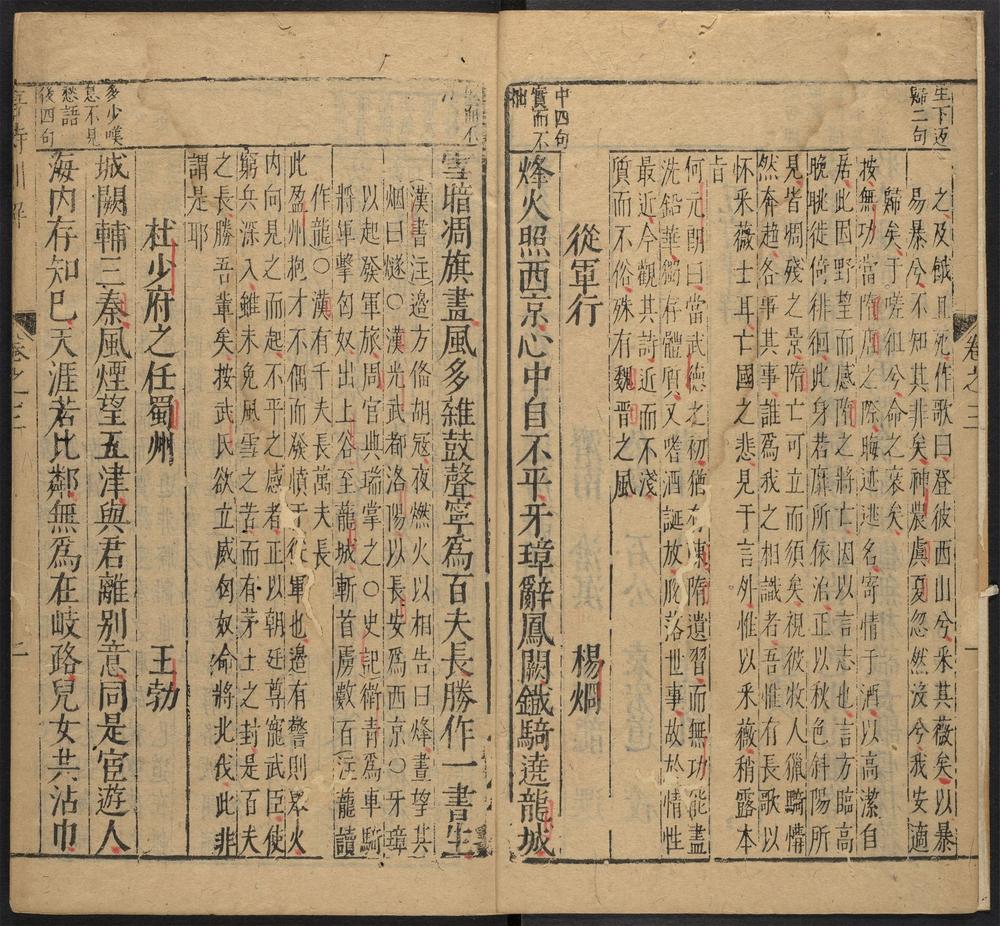 生下逐
歸二句
之及餓且死作歌曰登彼西山兮采其薇矣以暴
易暴兮不知其非矣神農虞夏忽然沒兮我安適
歸矣于嗟徂兮命之衰矣
按無功當隋唐之際晦迹逃名寄情于酒以高潔自
居此因野望而感隋之將亡因以言志也言方臨高
晚眺徙倚徘徊此身若靡所依洽正以秋色斜陽所
見皆凋殘之景隋亡可立而須矣視彼牧人獵騎懵
然奔趨各事其事誰爲我之相識者吾惟有長歌以
懷采薇士耳亡國之悲見于言外惟以采薇稍露本
旨
何元朗曰當武德之初猶有陳隋遺習而無功能盡
洗鉛華獨存體質又嗜酒誕放脫落世事故於情性
最近今觀其詩近而不淺
質而不俗殊有魏晉之風
從軍行 楊烱
中四句
實而不
拙
烽火照西京心中自不平牙璋辭鳳闕鐵騎遶龍城
卷之三
一
雪暗凋旗畫風多雜鼓聲寧爲百夫長勝作一書生
漢書注邊方備胡寇夜燃火以相告曰烽晝望其
烟曰燧○漢光武都洛陽以長安爲西京○牙璋
以起發軍旅周官典瑞掌之○史記衛青爲車騎
將軍擊匈奴出上谷至蘢城斬首虜數百注蘢讀
作龍○漢有千夫長萬夫長
此盈州抱才不偶而發憤于從軍也邊有警則眾火
内向見之而起不平之感者正以朝廷尊寵武臣使
窮兵深入雖未免風雪之苦而有茅土之封是百夫
之長勝吾輩矣按武氏欲立威匈奴侖將北伐此非
謂是耶
杜少府之任蜀州 王勃
多少嘆
息不見
愁語
後四句
城闕輔三秦風煙望五津與君離别意同是宦遊人
海内存知巳天涯若比鄰無爲在岐路兒女共沾巾
卷之三
二